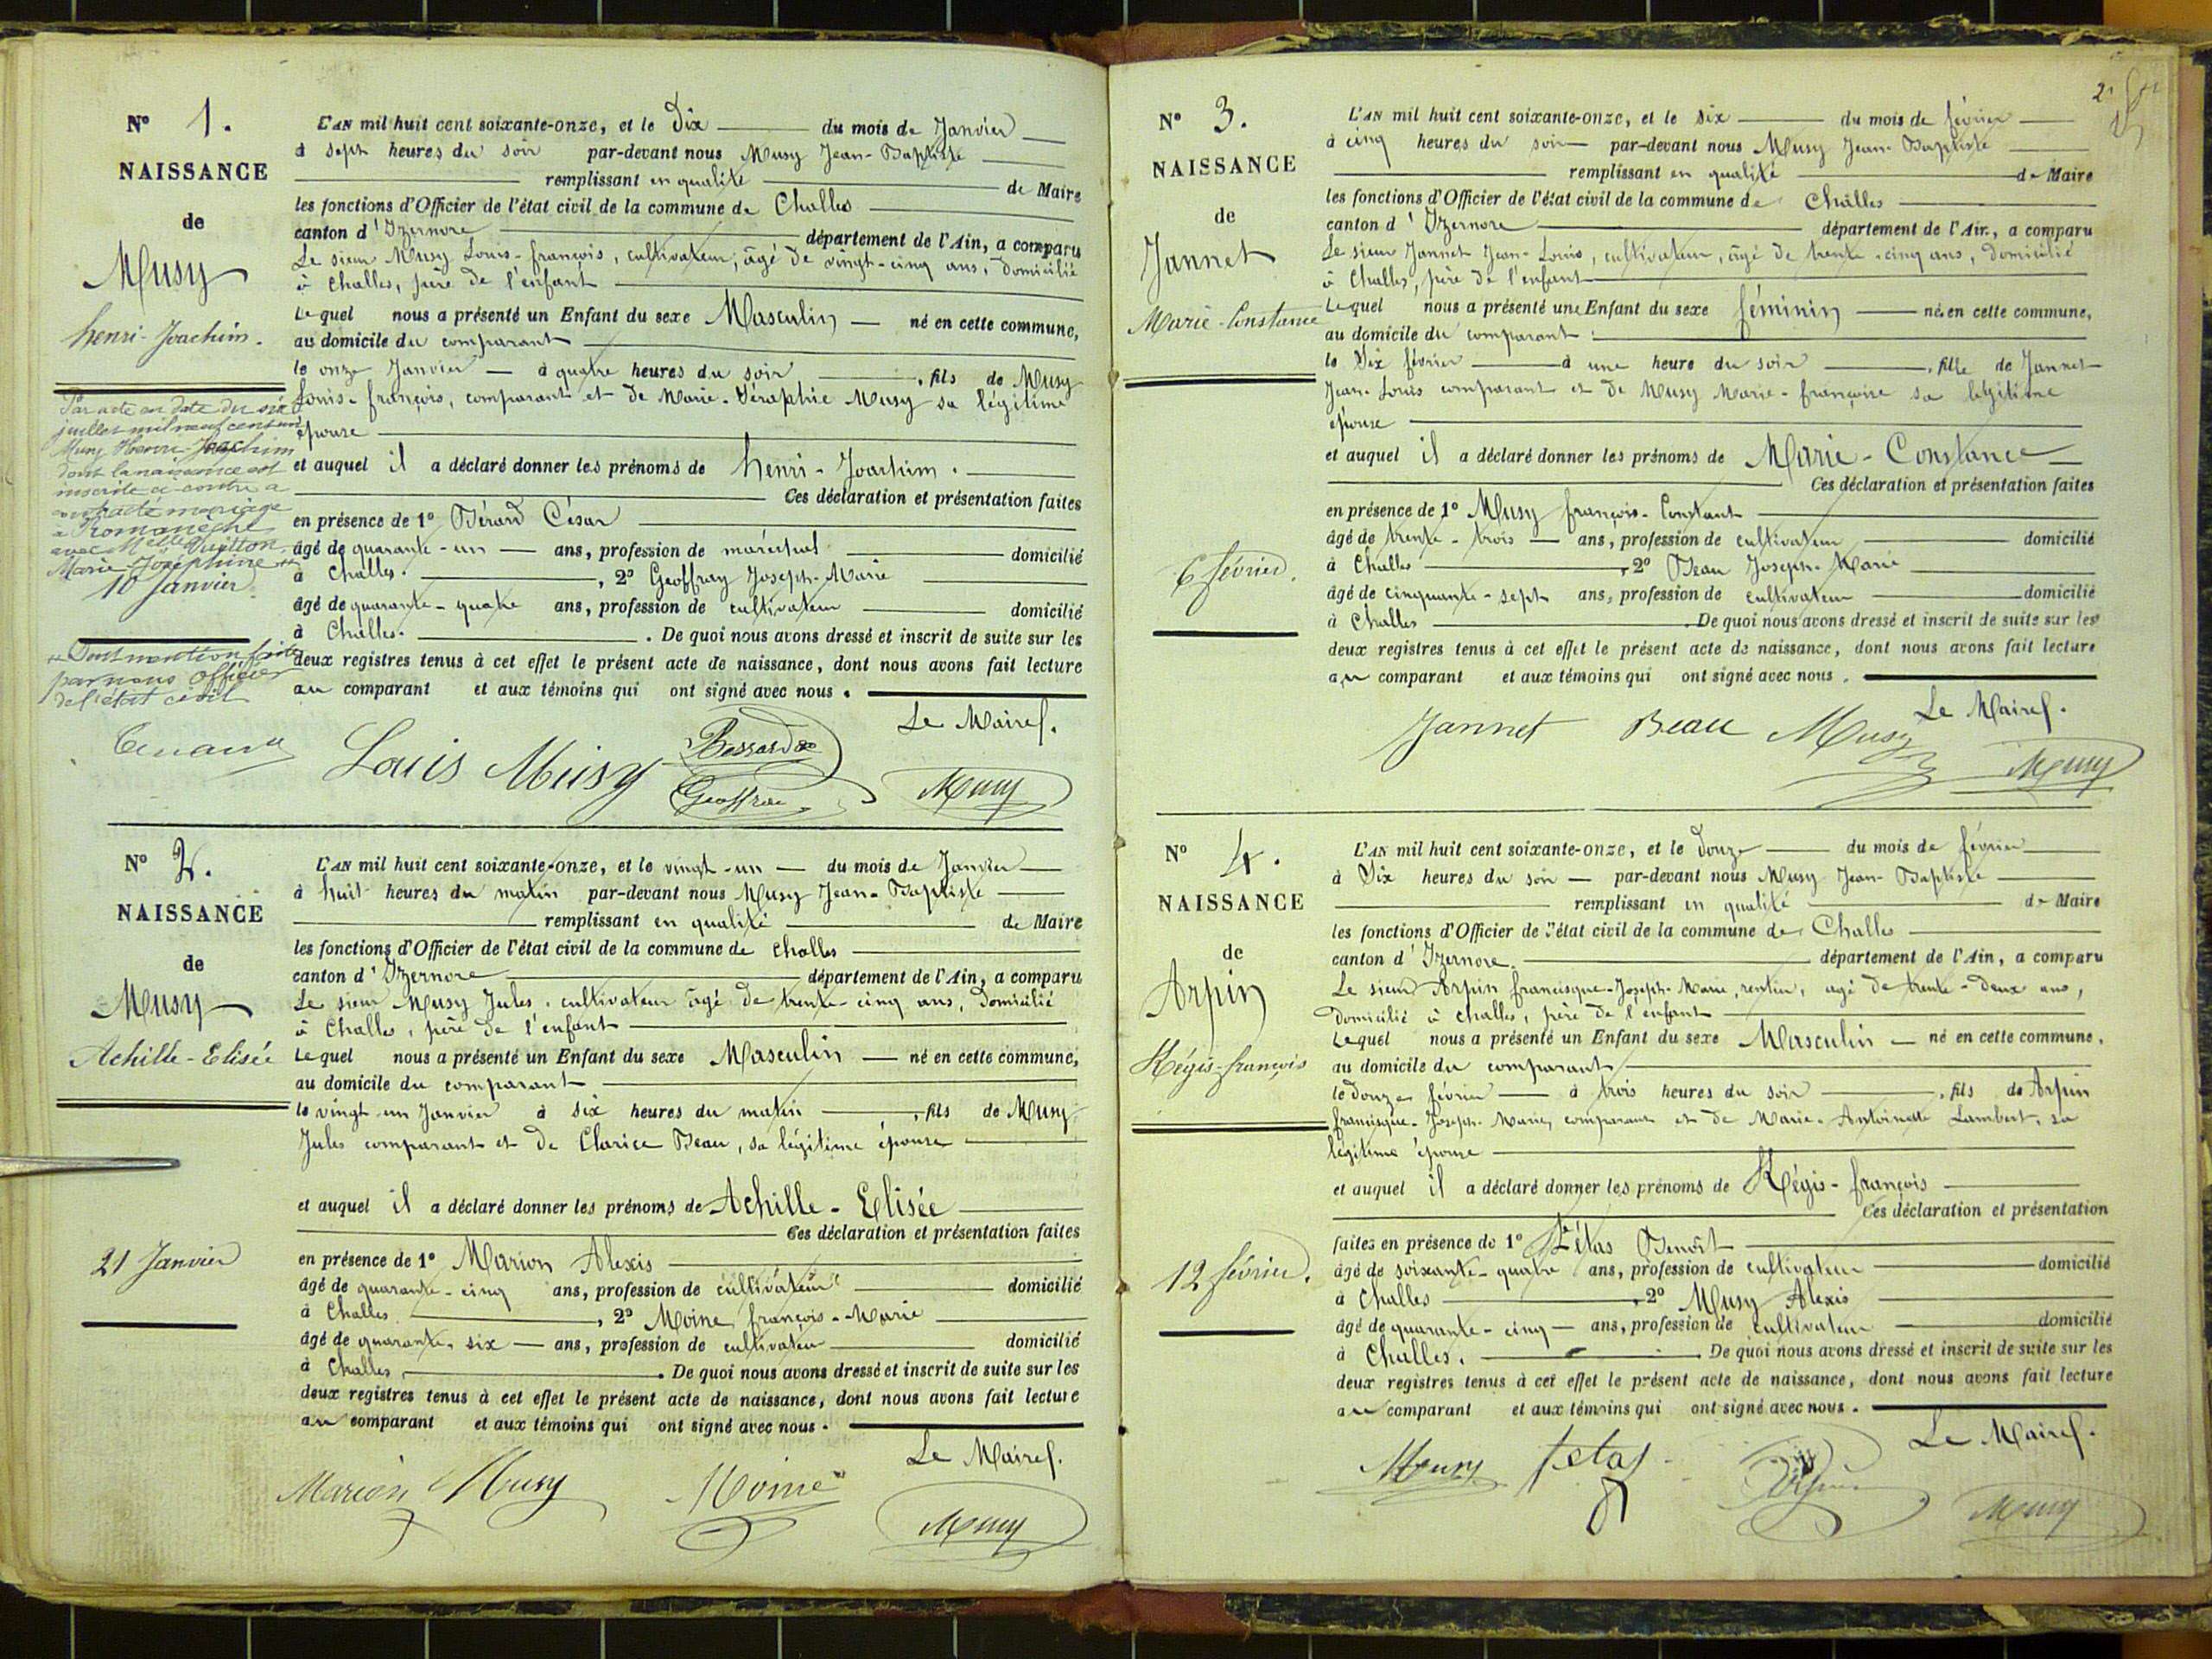 N° 1.
NAISSANCE
de
Musy
henri-Joachim.
Par acte en date du six
juillet mil neuf cent un
Musy Henri Joachim
dont la naissance est
inscrite ci-contre a
contracté mariage
à Romanèche
avec Melle
Marie Joséphine
10 Janvier.
Dont mention faite
par nous officier
de l'état civil
L'AN mil huit cent soixante-onze, et le Dix du mois de Janvier
à sept heures du soir par-devant nous Musy Jean-Baptiste
remplissant en qualité de Maire
les fonctions d'Officier de l'état civil de la commune de Challes
canton d'Izernore département de l'Ain, a comparu
Le sieur Musy Louis-françois, cultivateur, âgé de vingt-cinq ans, domicilié
à Challes, père de l'enfant
Lequel nous a présenté un Enfant du sexe Masculin né en cette commune,
au domicile du comparant
le onze Janvier à quatre heures du soir, fils de Musy
Louis-françois, comparant et de Marie-Séraphie Musy sa légitime
épouse
et auquel il a déclaré donner les prénoms de henri-Joachim.
Ces déclaration et présentation faites
en présence de 1° Bérard César
âgé de quarante-un ans, profession de maréchal domicilié
à Challes., 2° Geoffray Joseph-Marie
âgé de quarante-quatre ans, profession de cultivateur domicilié
à Challes. De quoi nous avons dressé et inscrit de suite sur les
deux registres tenus à cet effet le présent acte de naissance, dont nous avons fait lecture
au comparant et aux témoins qui ont signé avec nous.
Le Maire.
Louis Musy
Geoffray
Musy
N° 2.
NAISSANCE
de
Musy
Achille-Elisée
21 Janvier
L'AN mil huit cent soixante-onze, et le vingt-un du mois de Janvier
à huit heures du matin par-devant nous Musy Jean-Baptiste
remplissant en qualité de Maire
les fonctions d'Officier de l'état civil de la commune de Challes
canton d'Izernore département de l'Ain, a comparu
Le sieur Musy Jules, cultivateur âgé de trente-cinq ans, domicilié
à Challes, père de l'enfant
Lequel nous a présenté un Enfant du sexe Masculin né en cette commune,
au domicile du comparant
le vingt-un Janvier à six heures du matin, fils de Musy
Jules comparant et de Clarice Beau, sa légitime épouse
et auquel il a déclaré donner les prénoms de Achille-Elisée
Ces déclaration et présentation faites
en présence de 1° Marion Alexis
âgé de quarante-cinq ans, profession de cultivateur domicilié
à Challes, 2° Moine françois-Marie
âgé de quarante-six ans, profession de cultivateur domicilié
à Challes. De quoi nous avons dressé et inscrit de suite sur les
deux registres tenus à cet effet le présent acte de naissance, dont nous avons fait lecture
au comparant et aux témoins qui ont signé avec nous.
Le Maire.
Marion Musy Moine Musy
N° 3.
NAISSANCE
de
Jannet
Marie-Constance
6 février.
L'AN mil huit cent soixante-onze, et le six du mois de février
à cinq heures du soir par-devant nous Musy Jean-Baptiste
remplissant en qualité de Maire
les fonctions d'Officier de l'état civil de la commune de Challes
canton d'Izernore département de l'Ain, a comparu
Le sieur Jannet Jean-Louis, cultivateur, âgé de trente-cinq ans, domicilié
à Challes, père de l'enfant
Lequel nous a présenté une Enfant du sexe féminin née en cette commune,
au domicile du comparant
le Six février à une heure du soir, fille de Jannet
Jean-Louis comparant et de Musy Marie-françoise sa légitime
épouse
et auquel il a déclaré donner les prénoms de Marie-Constance
Ces déclaration et présentation faites
en présence de 1° Musy françois-Constant
âgé de trente-trois ans, profession de cultivateur domicilié
à Challes, 2° Beau Joseph-Marie
âgé de cinquante-sept ans, profession de cultivateur domicilié
à Challes. De quoi nous avons dressé et inscrit de suite sur les
deux registres tenus à cet effet le présent acte de naissance, dont nous avons fait lecture
au comparant et aux témoins qui ont signé avec nous.
Le Maire.
Jannet Beau Musy Musy
N° 4.
NAISSANCE
de
Arpin
Régis-françois
12 février.
L'AN mil huit cent soixante-onze, et le Douze du mois de février
à Six heures du soir par-devant nous Musy Jean-Baptiste
remplissant en qualité de Maire
les fonctions d'Officier de l'état civil de la commune de Challes
canton d'Izernore. département de l'Ain, a comparu
Le sieur Arpin francisque-Joseph-Marie, rentier, âgé de trente-deux ans,
domicilié à Challes, père de l'enfant
Lequel nous a présenté un Enfant du sexe Masculin né en cette commune,
au domicile du comparant
le douze février à trois heures du soir, fils de Arpin
francisque-Joseph-Marie, comparant et de Marie-Antoinette Lambert, sa
légitime épouse
et auquel il a déclaré donner les prénoms de Régis-françois
Ces déclaration et présentation
faites en présence de 1° Fétas Benoît
âgé de soixante-quatre ans, profession de cultivateur domicilié
à Challes, 2° Musy Alexis
âgé de quarante-cinq ans, profession de cultivateur domicilié
à Challes. De quoi nous avons dressé et inscrit de suite sur les
deux registres tenus à cet effet le présent acte de naissance, dont nous avons fait lecture
au comparant et aux témoins qui ont signé avec nous.
Le Maire.
Musy fetas Musy